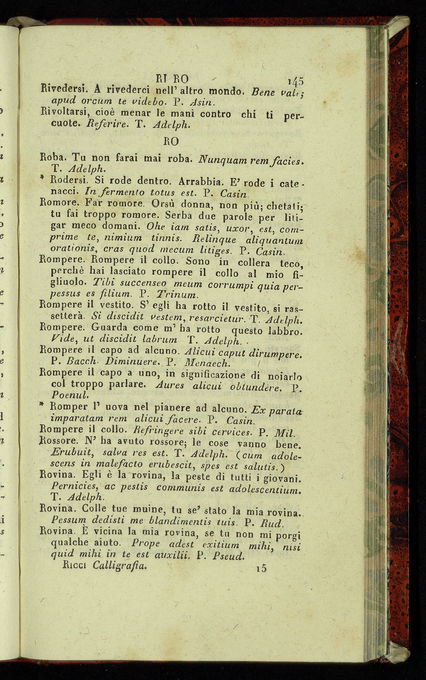 RI RO 145
Rivedersi. A rivederci nell' altro mondo. Bene vale;
apud orcum te videbo. P. Asin.
Rivoltarsi, cioè menar le mani contro chi ti per-
cuote. Referire. T. Adelph.
RO
Roba. Tu non farai mai roba. Nunquam rem facies.
T. Adelph.
* Rodersi. Si rode dentro. Arrabbia. E' rode i cate-
nacci. In fermento totus est. P. Casin
Romore. Far romore. Orsù donna, non più; chetati;
tu fai troppo romore. Serba due parole per liti-
gar meco domani. Ohe iam satis, uxor, est, com-
prime te, nimium tinnis. Relinque aliquantum
orationis, cras quod mecum litiges. P. Casin.
Rompere. Rompere il collo. Sono in collera teco,
perchè hai lasciato rompere il collo al mio fi-
gliuolo. Tibi succenseo meum corrumpi quia per-
pessus es filium. P. Trinum.
Rompere il vestito. S' egli ha rotto il vestito, si ras-
setterà. Si discidit vestem, resarcietur. T. Adelph.
Rompere. Guarda come m' ha rotto questo labbro.
Vide, ut discidit labrum T. Adelph.
Rompere il capo ad alcuno. Alicui caput dirumpere.
P. Bacch. Diminuere. P. Menaech.
Rompere il capo a uno, in significazione di noiarlo
col troppo parlare. Aures alicui obtundere. P.
Poenul.
* Romper l' uova nel pianere ad alcuno. Ex parata
imparatam rem alicui facere. P. Casin.
Rompere il collo. Refringere sibi cervices. P. Mil.
Rossore. N' ha avuto rossore; le cose vanno bene.
Erubuit, salva res est. T. Adelph. (cum adole-
scens in malefacto erubescit, spes est salutis.)
Rovina. Egli è la rovina, la peste di tutti i giovani.
Pernicies, ac pestis communis est adolescentium.
T. Adelph.
Rovina. Colle tue muine, tu se' stato la mia rovina.
Pessum dedisti me blandimentis tuis. P. Rud.
Rovina. È vicina la mia rovina, se tu non mi porgi
qualche aiuto. Prope adest exitium mihi, nisi
quid mihi in te est auxilii. P. Pseud.
RICCI Calligrafia. 15